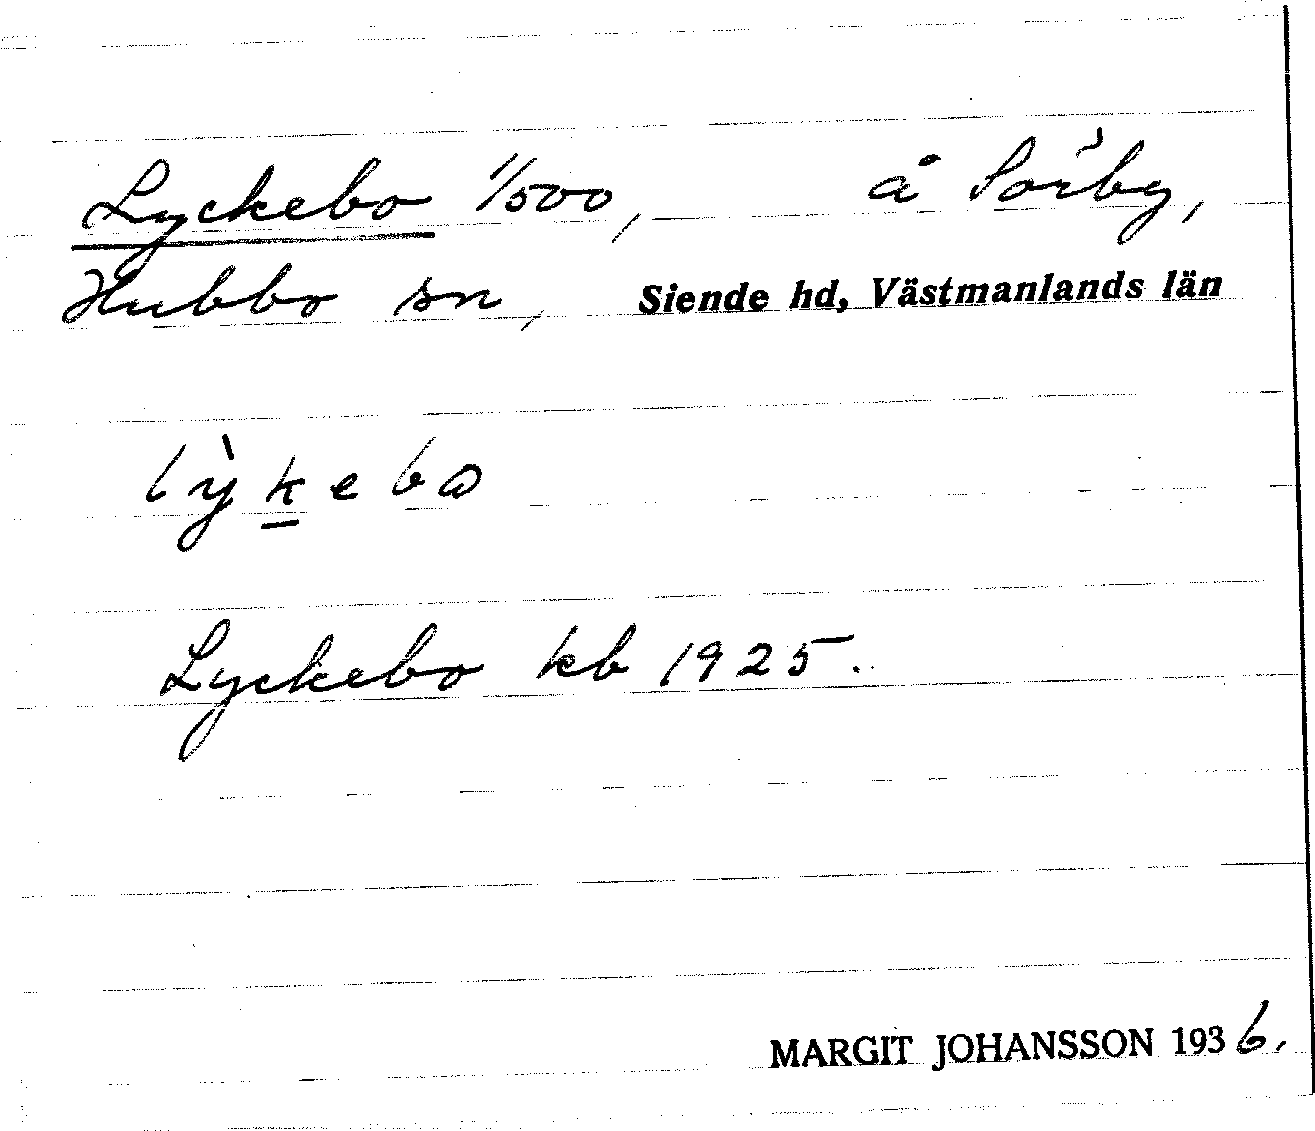 Lyckebo 1/500, å Sörby,
Hubbo sn, Siende hd, Västmanlands län
lỳk̲ebɷ
Lyckebo kb 1925.
MARGIT JOHANSSON 1936.